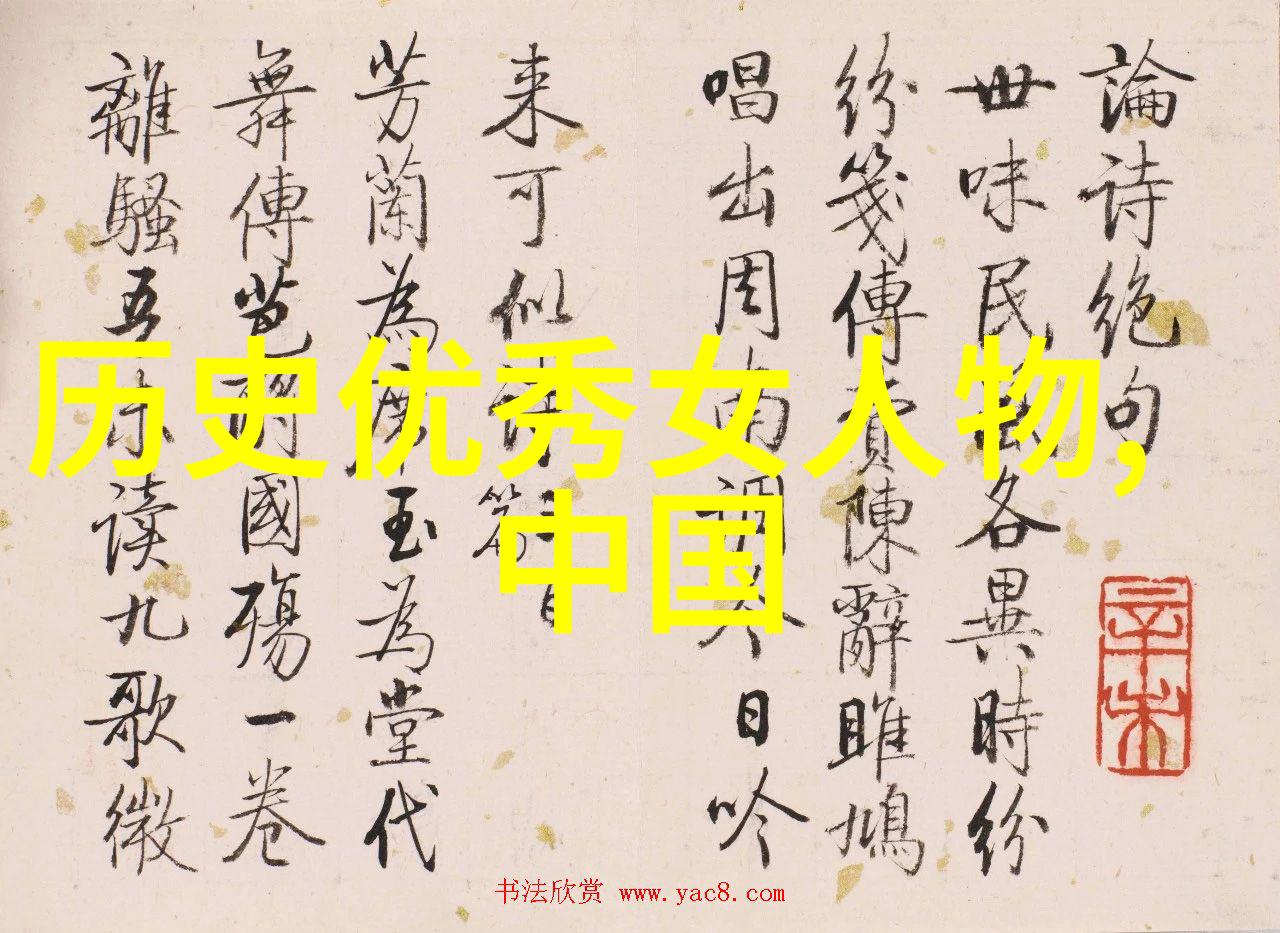 历史优秀女人物,
中国
論诗絶句
世味民各異時纷
纷箋傳陳辭雎鳩
唱出周南調今日吟
来可似
芳蘭為玉為堂代
舞傳芭國殤一卷
離騷五读九歌微
辛未
书法欣赏 www.yac8.com